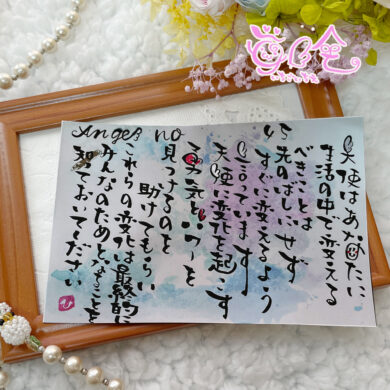 Angel no 15
天使はあなたに
生活の中で変える
べきことは
先のばしにせず
すぐに変えるよう
言っています
天使に変化を起こす
勇気とパワーを
見つけるのを
助けてもらい
これらの変化は最終的に
みんなのためとなることを
知っておいてください